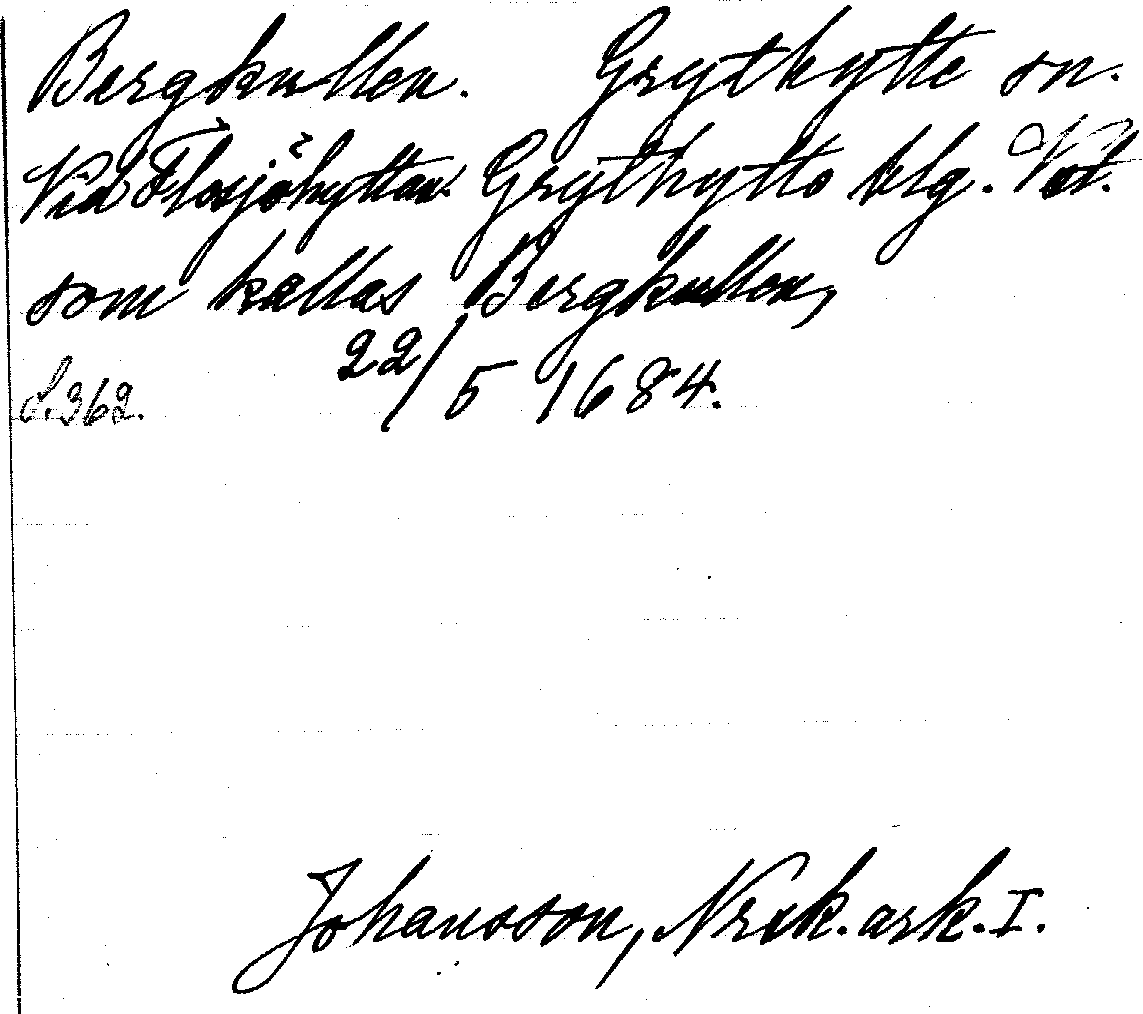 Bergkullen. Grythytte sn.
Vid Flosjöhyttan. Grythytte blg. Vst.
som kallas Bergkullen,
22/5 1684.
S. 362.
Johansson, Nrik. ark. I.